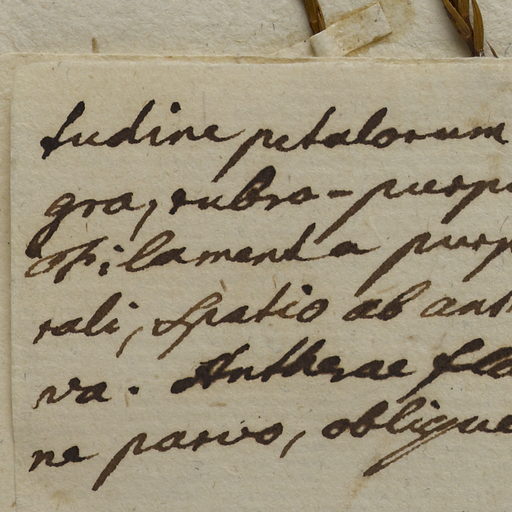 tudine petalorum
gra, rubro-purpu
Filamenta purp
rali, spatio ab anth
va. Antherae fla
ne parvo, oblique